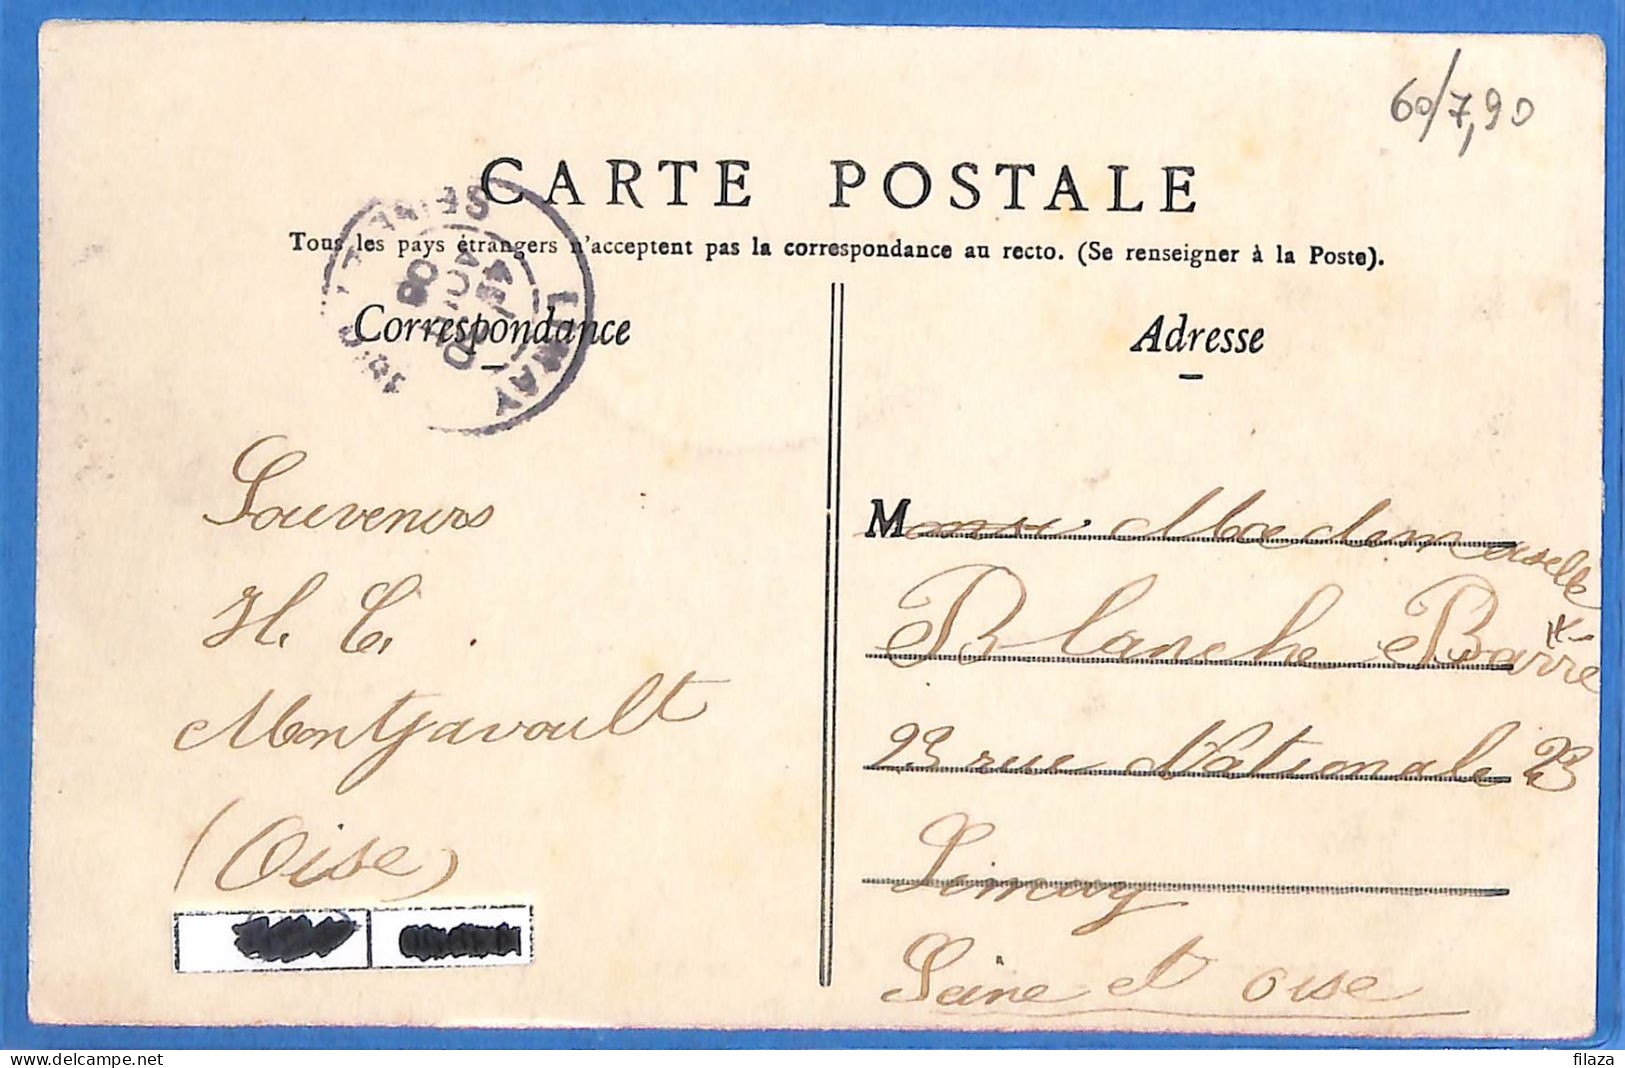 60/7,90
CARTE POSTALE
Tous les pays étrangers n'acceptent pas la correspondance au recto. (Se renseigner à la Poste).
Correspondance
Adresse
LIMAY
SEINE
Souvenirs
H. C.
Montjavoult
(Oise)
M Mademoiselle
Blanche Barre
23 rue Nationale 23
Limay
Seine et Oise
filaza